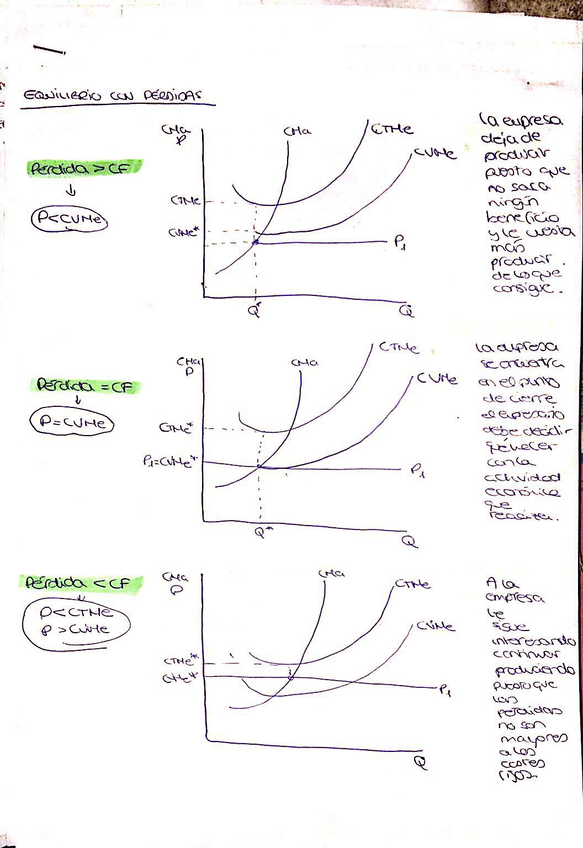 EQUILIBRIO CON PÉRDIDAS
Pérdida > CF
P<CVMe
CMa
P
CMa
CTMe
CVMe
CTMe
CVMe*
P1
Q*
Q
la empresa
deja de
producir
puesto que
no saca
ningún
beneficio
y le cuesta
más
producir.
de lo que
consigue.
Pérdida = CF
P=CVMe
CMa
P
CMa
CTMe
CVMe
CTMe*
P1=CVMe*
P1
Q*
Q
la empresa
se encuentra
en el punto
de cierre
el empresario
debe decidir
qué hacer
con la
actividad
económica
que
realiza.
Pérdida < CF
P<CTMe
P>CVMe
CMa
P
CMa
CTMe
CVMe
CTMe*
P1
Q
A la
empresa
le
sigue
interesando
continuar
produciendo
puesto que
las
pérdidas
no son
mayores
a los
costes
fijos.